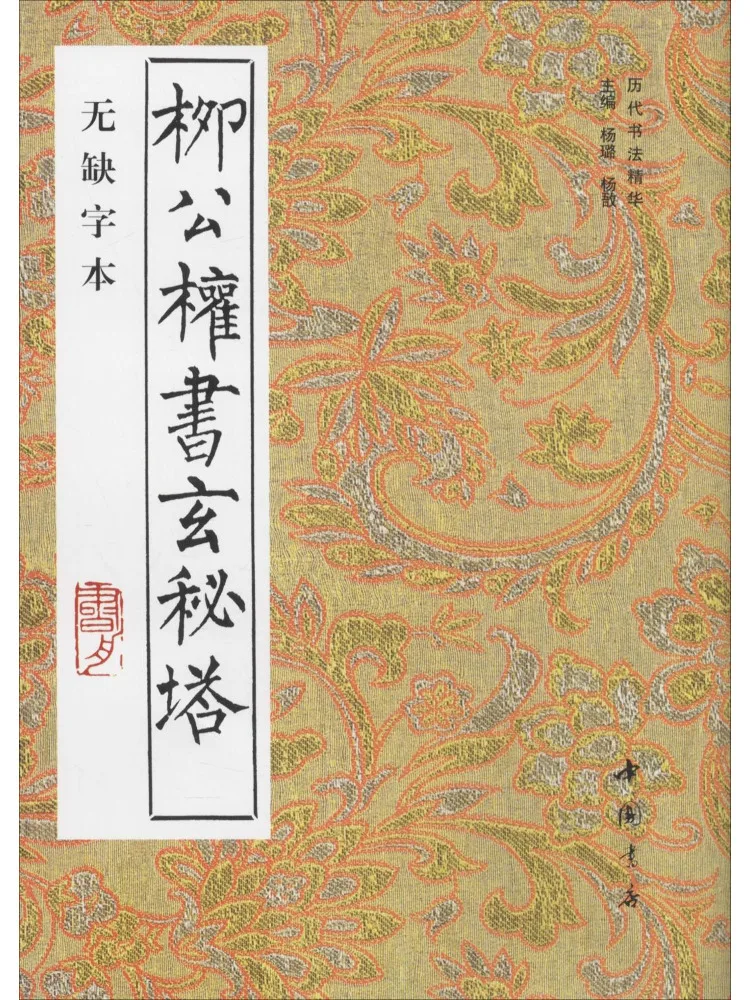 历代书法精华
主编 杨璐 杨散
柳公權書玄秘塔
无缺字本
中国书店